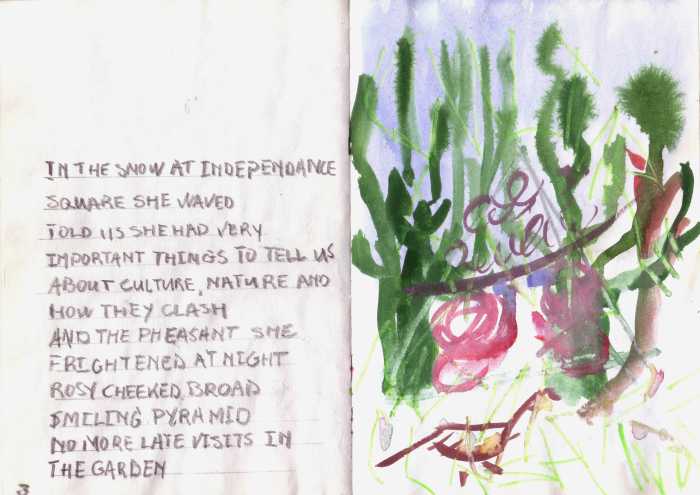 IN THE SNOW AT INDEPENDANCE
SQUARE SHE WAVED
TOLD US SHE HAD VERY
IMPORTANT THINGS TO TELL US
ABOUT CULTURE, NATURE AND
HOW THEY CLASH
AND THE PHEASANT SHE
FRIGHTENED AT NIGHT
ROSY CHEEKED, BROAD
SMILING PYRAMID
NO MORE LATE VISITS IN
THE GARDEN
3